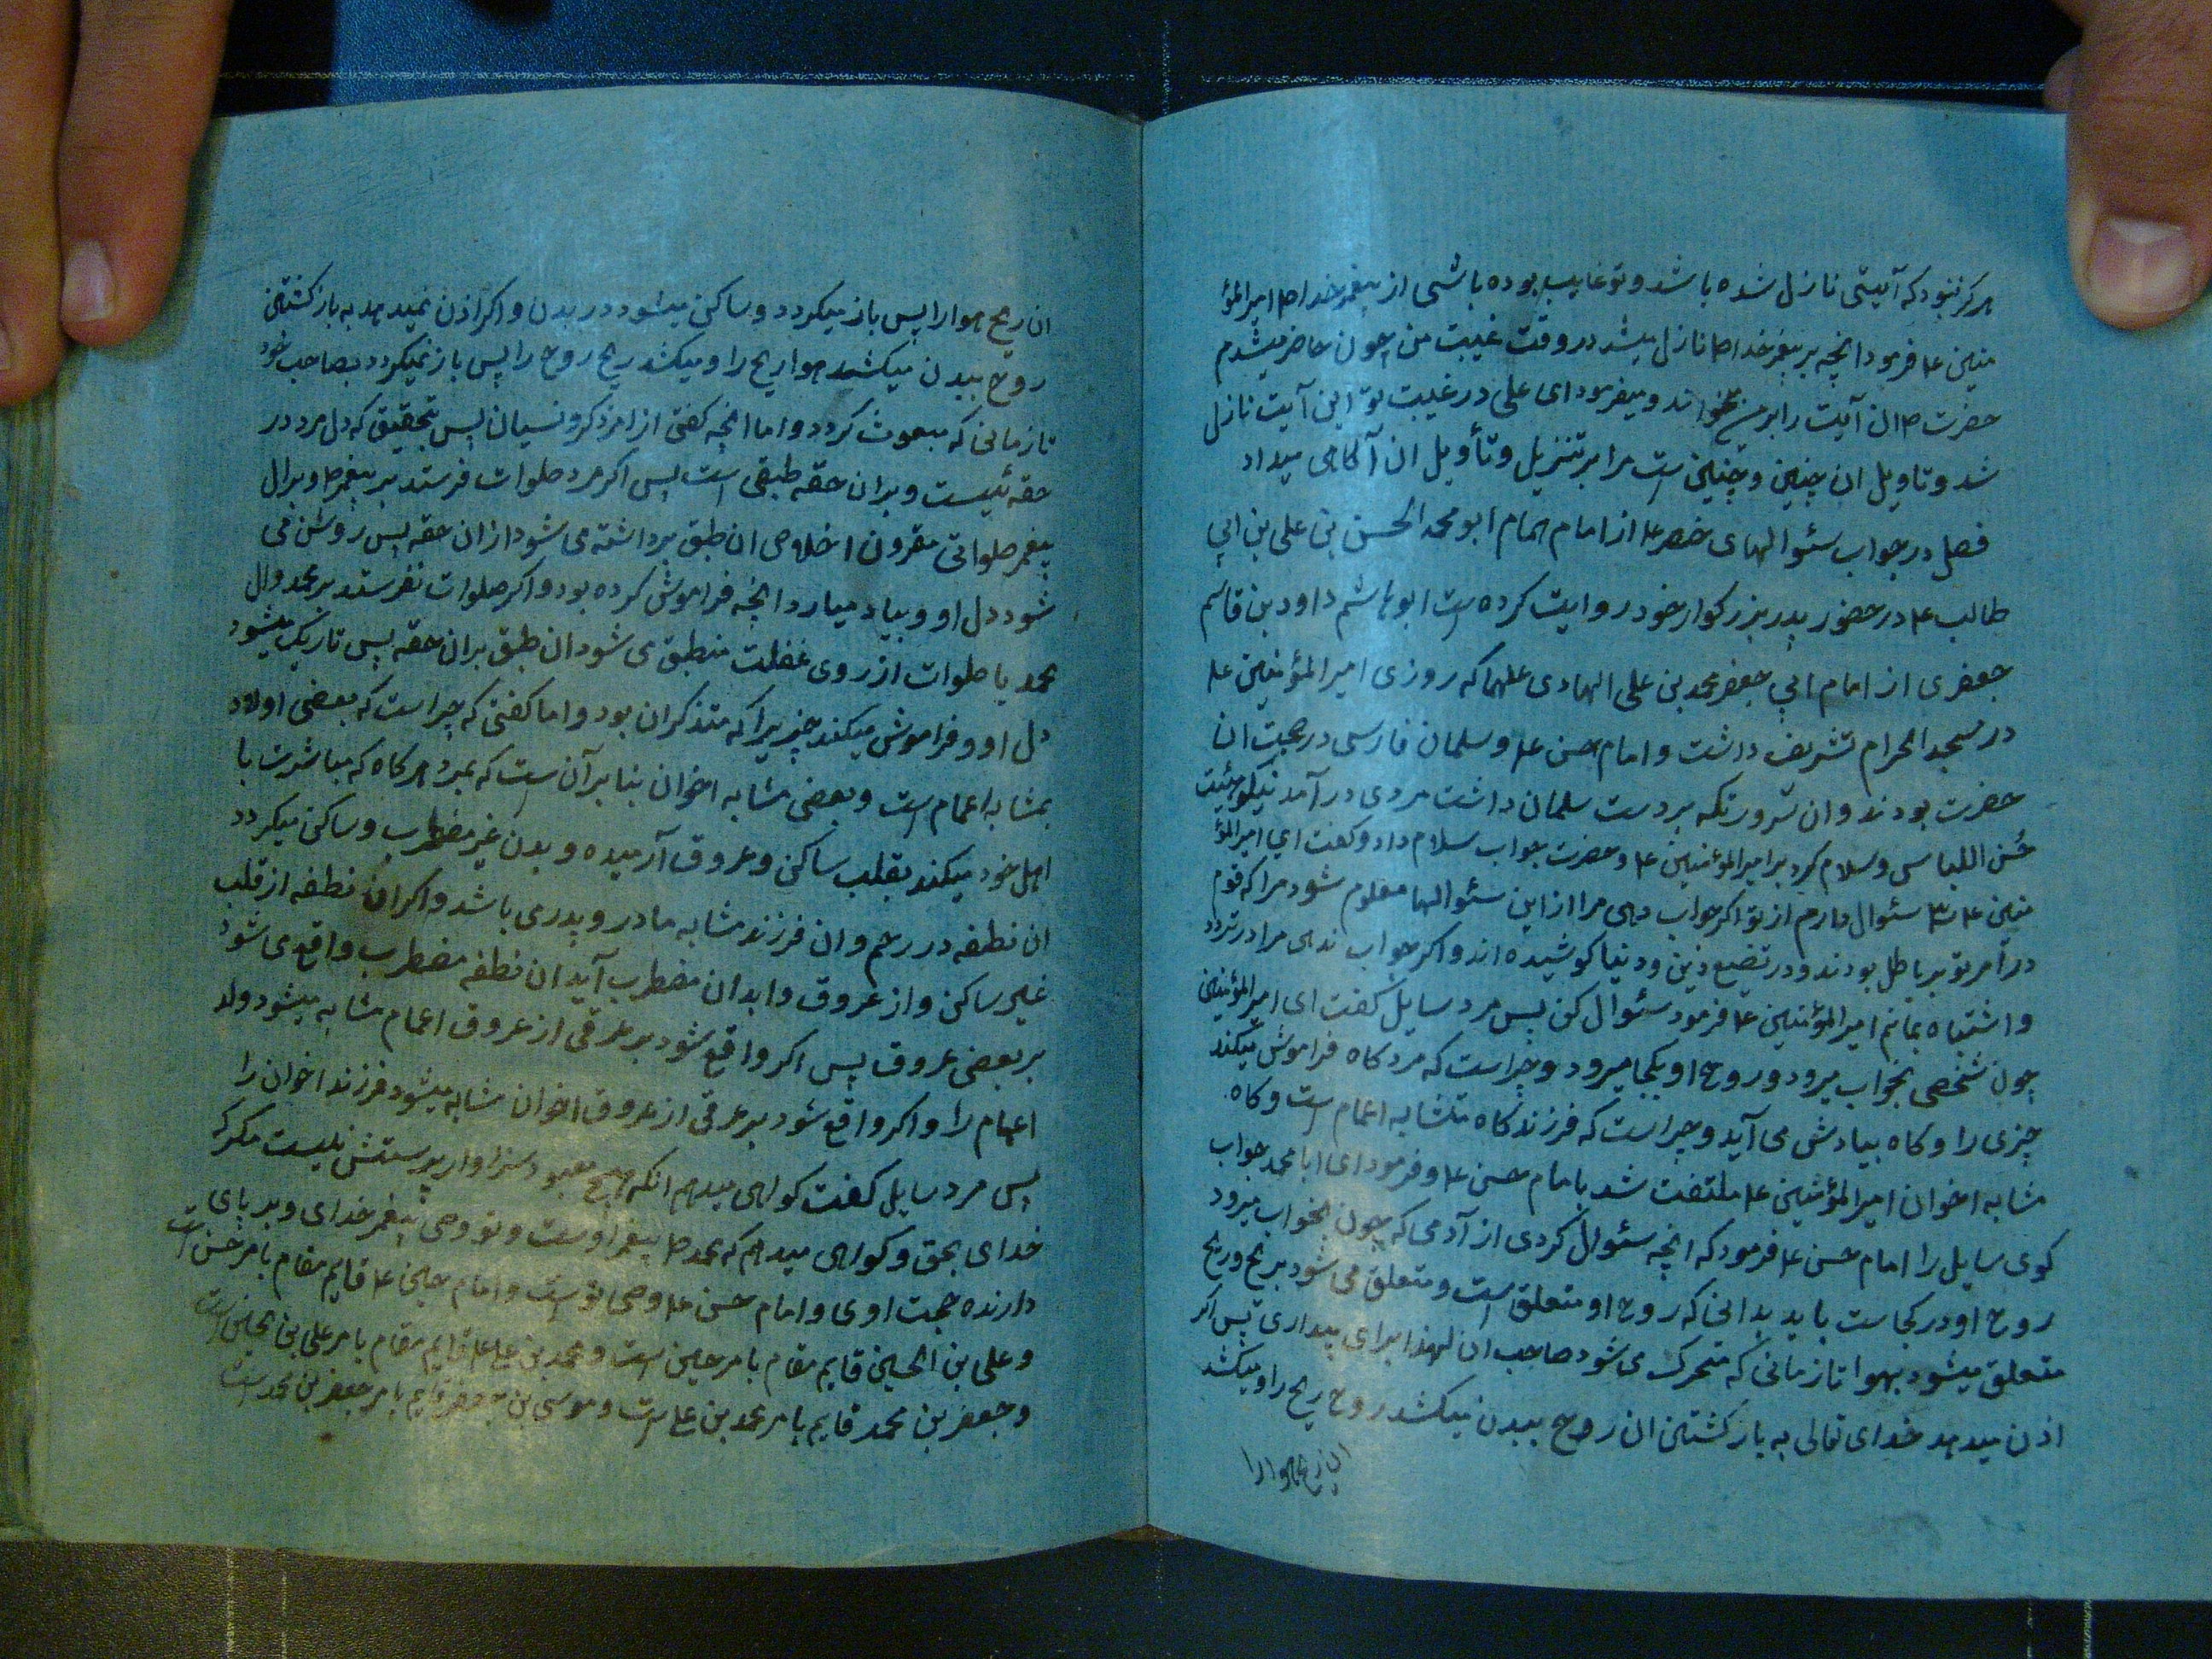 هرگز نبود که آیتی نازل شده باشد و تو غایب بوده باشی از پیغمبر خدا ص امیرالمؤ
منین ع فرمود انچه بر پیغمبر خدا ص نازل میشد در وقت غیبت من چون حاضر میشدم
حضرت ص ان آیت را بر من میخواند و میفرمود ای علی در غیبت تو این آیت نازل
شد و تاویل ان چنین و چنین است مرا بر تنزیل و تأویل ان آگاهی میداد
فصل در جواب سئوالهای خضر ع از امام همام ابو محمد الحسن بن علی بن ابی
طالب ع در حضور پدر بزرکوار خود روایت کرده است ابو هاشم داود بن قاسم
جعفری از امام ابی جعفر محمد بن علی الهادی علیهما که روزی امیر المؤمنین ع
در مسجد الحرام تشریف داشت و امام حسن ع و سلمان فارسی در صحبت ان
حضرت بودند و ان سرور تکه بر دست سلمان داشت مردی در آمد نیکو هیئت
حُسن اللباس و سلام کرد بر امیر المؤمنین ع و حضرت جواب سلام داد و کفت ای امیر المؤ
منین ع ۳ سئوال دارم از تو اکر جواب دهی مرا از این سئوالها معلوم شود مرا که قوم
در امر تو بر باطل بودند و در تضیع دین و دنیا کوشیده اند و اکر جواب ندهی مرا در تردد
و اشتباه بمانم امیر المؤمنین ع فرمود سئوال کن پس مرد سایل کفت ای امیر المؤمنین
چون شخصی بخواب میرود و روح او بکجا میرود و چراست که مرد کاه فراموش میکند
چیزی را و کاه بیادش می آید و چراست که فرزند کاه متشابه اعمام است و کاه
مشابه اخوان امیر المؤمنین ع ملتفت شد بامام حسن ع و فرمود ای ابا محمد جواب
کوی سایل را امام حسن ع فرمود که انچه سئوال کردی از آدمی که چون بخواب میرود
روح او در کجاست باید بدانی که روح او متعلق است و متعلق می شود بریح و ریح
متعلق میشود بهوا تا زمانی که متحرک می شود صاحب ان لهذا برای بیداری پس اکر
اذن میدهد خدای تعالی به باز کشتن ان روح ببدن میکشد روح ریح را و میکشد
ان ریح هوا را
ان ریح هوا را پس باز میکردد و ساکن میشود در بدن و اکر اذن نمیدهد به باز کشتن
روح ببدن میکشد هوا ریح را و میکشد ریح روح را پس باز نمیکردد بصاحب خود
تا زمانی که مبعوث کردد و اما انچه کفتی از امر ذکر و نسیان پس بتحقیق که دل مرد در
حقه ئیست و بر ان حقه طبقی است پس اکر مرد صلوات فرستد بر پیغمبر ص و بر ال
پیغمبر صلواتی مقرون اخلاص ان طبق برداشته می شود از ان حقه پس روشن می
شود دل او و بیاد میارد انچه فراموش کرده بود و اکر صلوات نفرستد بر محمد وال
محمد یا صلوات از روی غفلت منطبق می شود ان طبق بر ان حقه پس تاریک میشود
دل او و فراموش میکند چیزیرا که متذکر ان بود و اما کفتی که چراست که بعضی اولاد
بمشابه اعمام است و بعضی مشابه اخوان بنا بر آن است که بمرد هر کاه که مباشرت با
اهل خود میکند بقلب ساکن و عروق آرمیده و بدن غیر مضطرب و ساکن میکردد
ان نطفه در رحم و ان فرزند مشابه مادر و پدری باشد و اکر ان نطفه از قلب
غیر ساکن و از عروق و ابدان مضطرب آید ان نطفه مضطرب واقع می شود
بر بعضی عروق پس اکر واقع شود بر عرقی از عروق اعمام مشابه میشود ولد
اعمام را و اکر واقع شود بر عرقی از عروق اخوان مشابه میشود فرزند اخوان را
پس مرد سایل کفت کواهی میدهم انکه هیچ معبود سزاوار پرستش نیست مکر که
خدای بحق و کواهی میدهم که محمد ص پیغمبر اوست و تو وصی پیغمبر خدای و بر پای
دارنده حجت اوی و امام حسن ع وصی تو است و امام حسین ع قایم مقام بامر حسن است
و علی بن الحسین قایم مقام بامر حسین است و محمد بن علی ع قایم مقام بامر علی بن الحسین است
و جعفر بن محمد قایم بامر محمد بن علی است و موسی بن جعفر قایم بامر جعفر بن محمد است